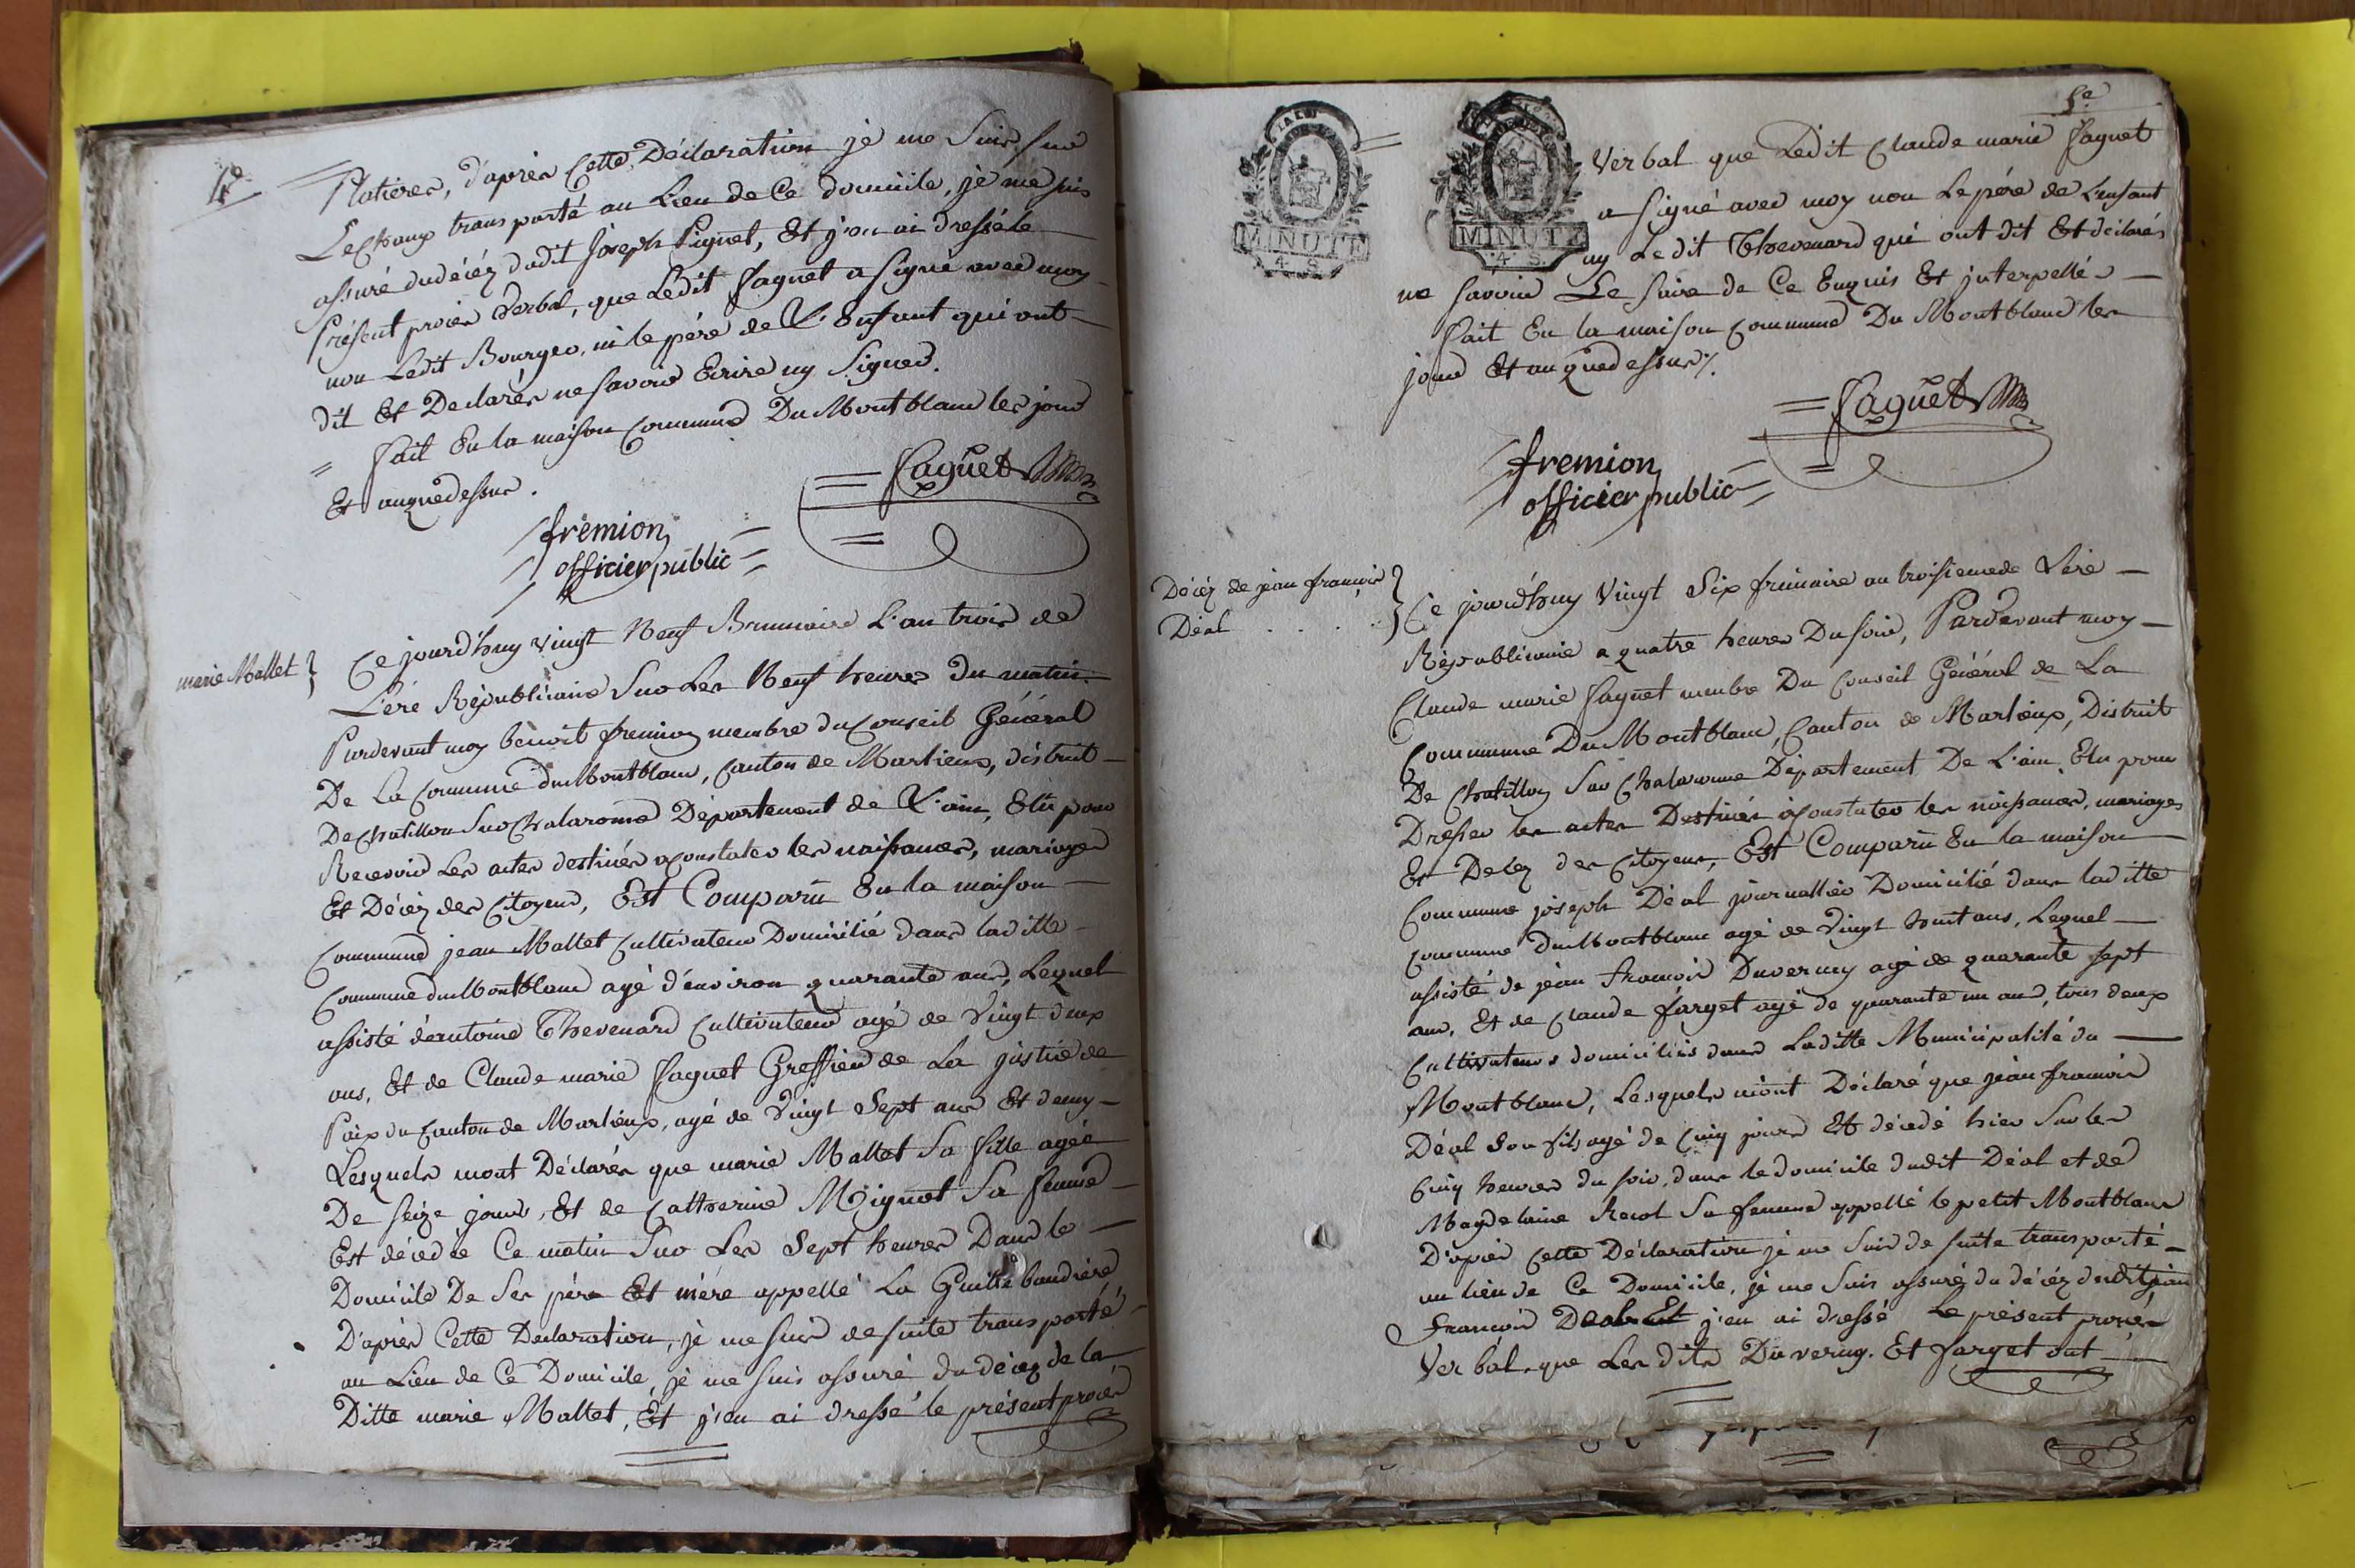 4e
Platieres, d'après Cette Déclaration je me Suis sur
Lechamp transporté au Lieu de Ce domicile, je me suis
assuré du décéz dudit Joseph Pignet, Et j'en ai dressé le
Présent procès Verbal, que Ledit Faguet a signé avec moy
non Ledit Bourgeo, ni le père de L'Enfant qui ont
dit Et Declarés ne savoir Ecrire ny Signer.
Fait En la maison Commune Du Montblanc les jour
Et anquedessus.
Faguet
fremion
officier public
marie Mallet
Ce jourd'huy vingt Neuf Brumaire L'an trois de
L'ére Républicaine Sur Les Neuf heures du matin
Pardevant moy benoit fremion membre du Conseil Général
De La Commune du Montblanc, Canton de Marlieux, district
De Chatillon Sur Chalaronne Département de L'ain, Elu pour
Recevoir Les actes destinés a Constater les naissances, mariages
Et Décéz des Citoyens, Est Comparü En la maison
Commune jean Mallet Cultivateur Domicilié dans laditte
Commune du Montblanc agé d'environ quarante ans, Lequel
assisté d'antoine Thevenard Cultivateur agé de Vingt deux
ans, Et de Claude marie Faguet Greffier de La justice de
Paix du Canton de Marlieux, agé de Vingt Sept ans Et demy
Lesquels mont Déclarés que marie Mallet Sa fille agée
De seize jours, Et de Catherine Mignot Sa femme
Est décédée Ce matin Sur Les Sept heures Dans le
Domicile De Ses père Et mére appellé La Guillebaudiere
D'après Cette Declaration, je me suis de suite transporté
au Lieu de Ce Domicile, je me suis assuré du décéz de la
Ditte marie Mallet, Et j'en ai dressé le présent procès
5e
LA LOI
MINUTE
4 S
MINUTE
4 S
Verbal que Ledit Claude marie Faguet
a signé avec moy non Le pére de L'enfant
ny Le dit Thevenard qui ont dit Et déclarés
ne savoir Le faire de Ce Enquis Et interpellés
Fait En la maison Commune Du Montblanc les
jour Et anquedessus
Faguet
fremion
officier public
Décéz de jean françois
Déal . . . .
Ce jourd'huy Vingt Six frimaire an troisieme de L'ére
Républicaine a quatre heures Du soir, Pardevant moy
Claude marie Faguet membre Du Conseil Général de La
Commune Du Montblanc, Canton de Marlieux, District
De Chatillon Sur Chalaronne Département De L'ain, Elu pour
Dresser les actes Destinés a Constater les naissances, mariages
Et Decéz des Citoyens, Est Comparü En la maison
Commune joseph Déal journallier Domicilié dans laditte
Commune du Montblanc agé de Vingt huit ans, Lequel
assisté de jean francois Duverny agé de quarante sept
ans, Et de Claude farget agé de quarante un ans, tous deux
Cultivateurs domiciliés dans Laditte Municipalité du
Montblanc, Lesquels m'ont Déclaré que jean francois
Déal Son fils agé de Cinq jours Et décédé hier Sur les
Cinq heures du soir, dans le domicile dudit Déal et de
Magdelaine Recol Sa femme appellé le petit Montblanc
D'après Cette Déclaration je me Suis de suite transporté
au lieu de Ce Domicile, je me Suis assuré du décéz dudit jean
francois Déal Et j'en ai dressé Le présent procès
Verbal, que Les dits Duverny. Et farget ont